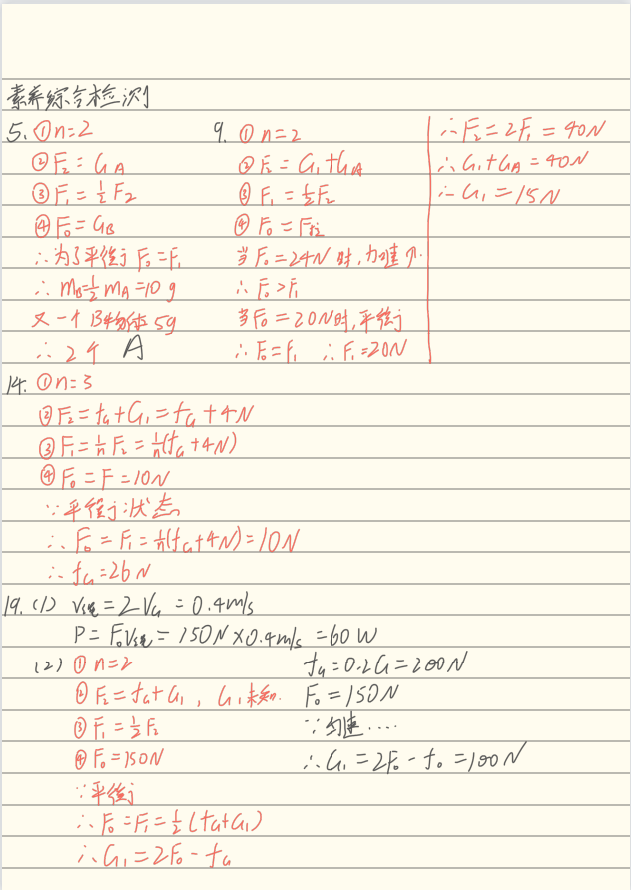 素养综合检测
5. ①n=2
②F₂=G_A
③F₁=½F₂
④F₀=G_B
∴为了平衡 F₀=F₁
∴ m_B=½m_A=10g
又一个B物体5g
∴ 2个 A
9. ①n=2
②F₂=G₁+G_A
③F₁=½F₂
④F₀=F拉
当F₀=24N时,加速个.
∴F₀>F₁
当F₀=20N时,平衡
∴F₀=f₁ ∴F₁=20N
∴F₂=2F₁=40N
∴G₁+G_A=40N
∴G₁=15N
14. ①n=3
②F₂=f_G+G₁=f_G+4N
③F₁=1/n F₂=1/n(f_G+4N)
④F₀=F=10N
∵平衡状态
∴F₀=F₁=1/n(f_G+4N)=10N
∴f_G=26N
19. (1) V绳=2V_G=0.4m/s
P=F₀V绳=150N×0.4m/s=60W
(2) ①n=2
②F₂=f_G+G₁, G₁未知.
③F₁=½F₂
④F₀=150N
∵平衡
∴F₀=F₁=½(f_G+G₁)
∴G₁=2F₀-f_G
f_G=0.2G=200N
F₀=150N
∵匀速....
∴G₁=2F₀-f₀=100N